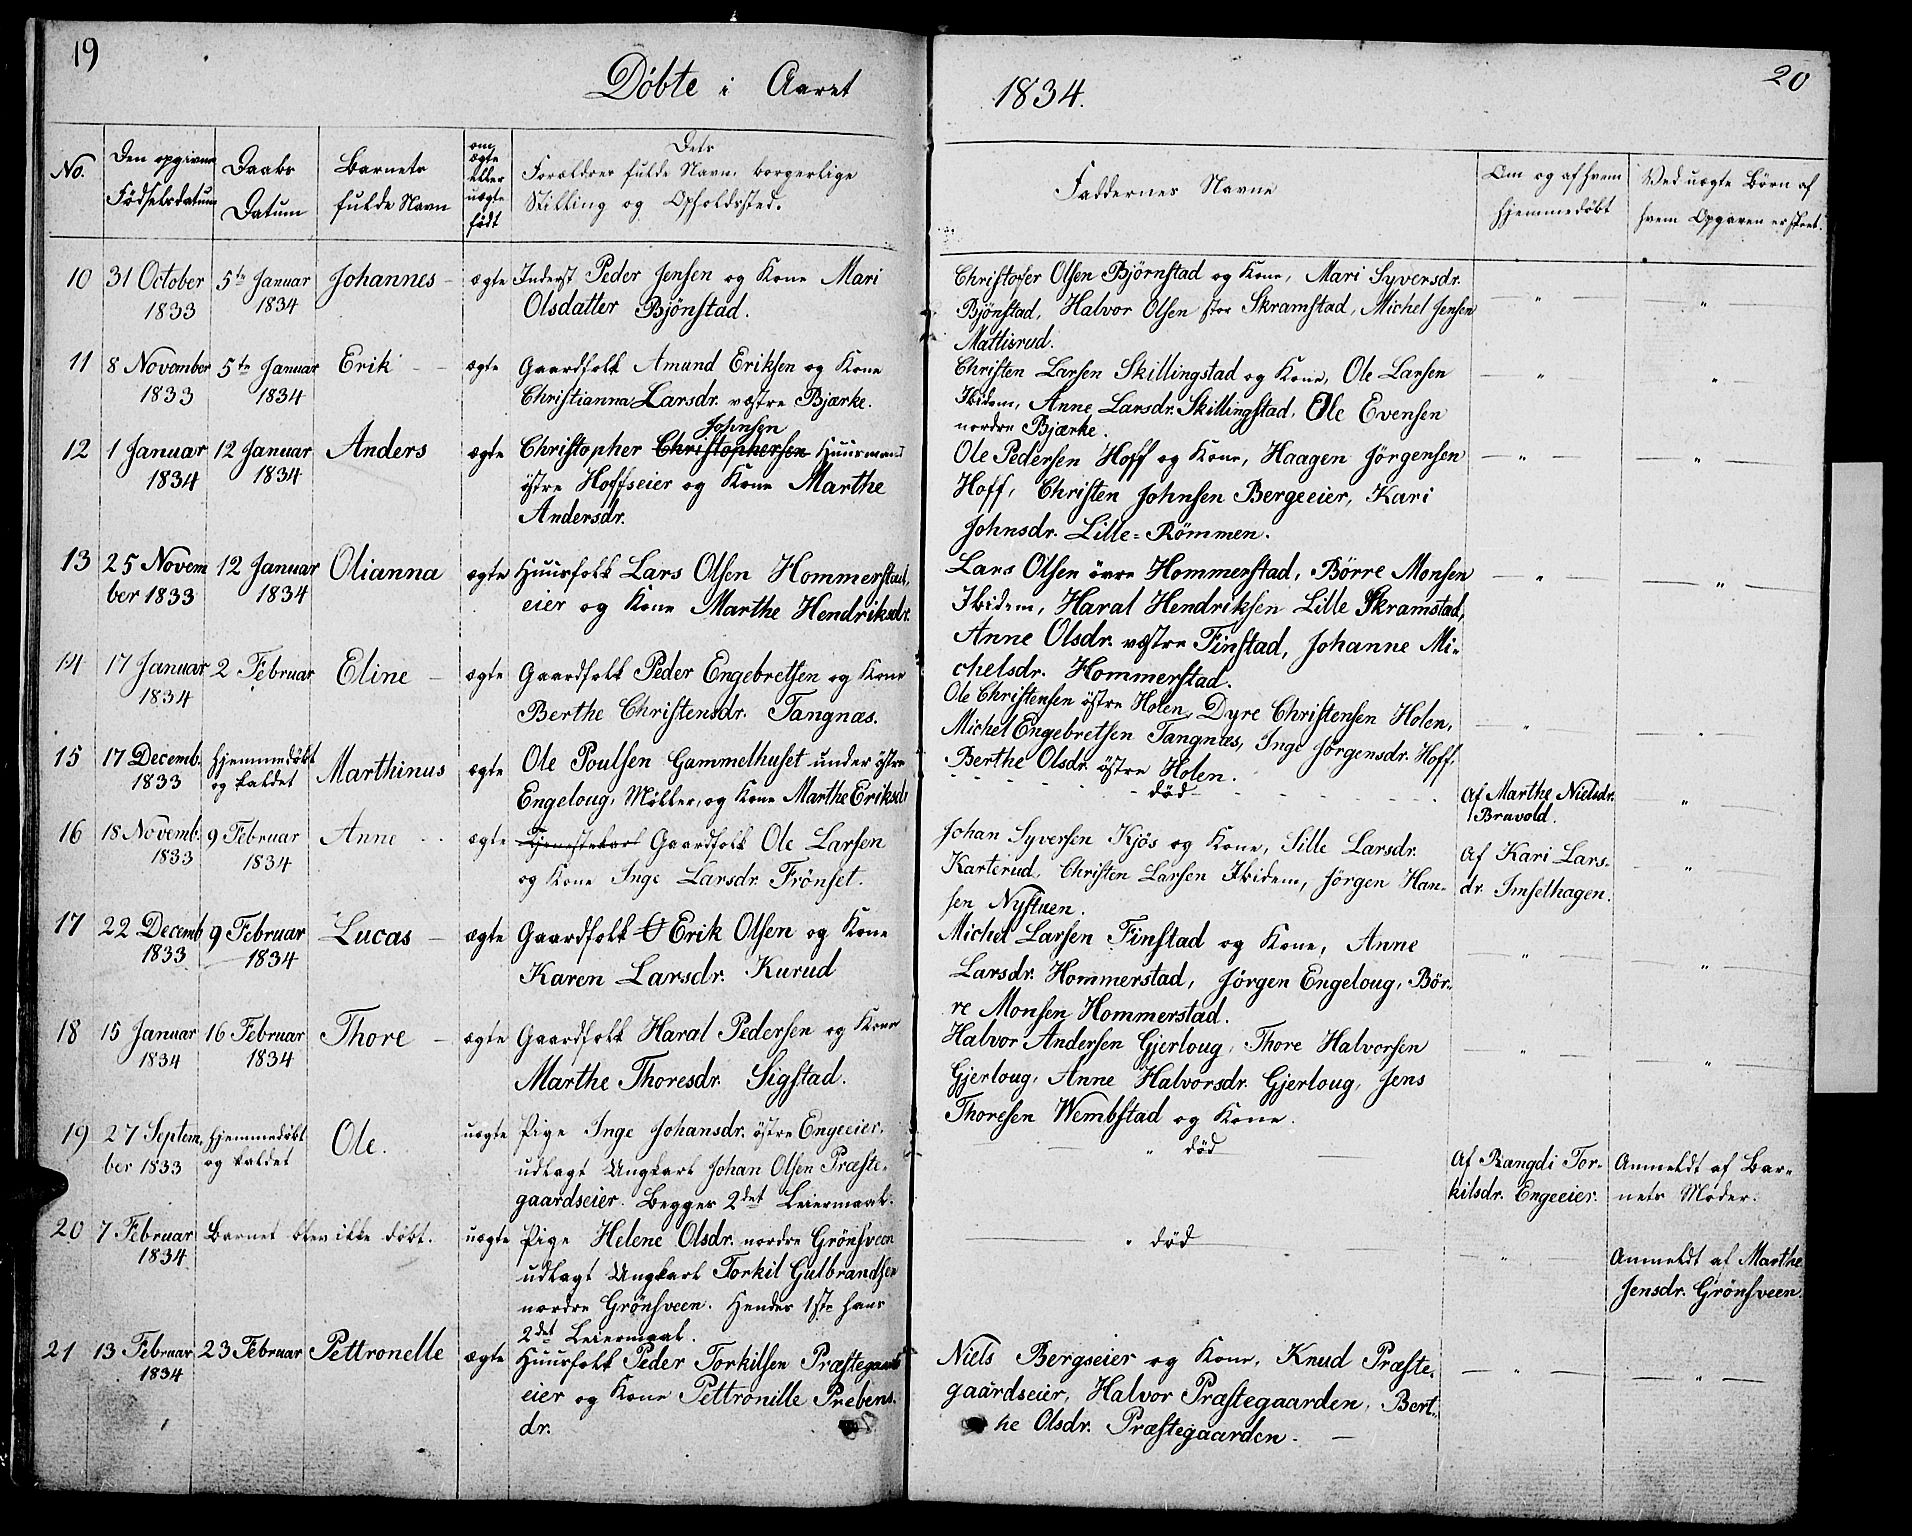 19
Döbte i Aaret
1834.
20
No.
Den opgivne
Födselsdatum
Daabs
Datum
Barnets
fulde Navn
om
ægte
eller
uægte
födt
Dets
Forældres fulde Navn, borgerlige
Stilling og Opholdssted.
Faddernes Navne
Om og af hvem
hjemmedöbt
Ved uægte Börn af
hvem Opgaven er skeet.
10
31 October
1833
5te Januar
1834
Johannes
ægte
Inderst Peder Jensen og Kone Mari
Olsdatter Bjönstad.
Christofer Olsen Björnstad og Kone, Mari Syversdr.
Bjönstad, Halvor Olsen stor Skramstad, Michel Jensen
Mattisrud.
11
8 November
1833
5te Januar
1834
Erik
ægte
Gaardfolk Amund Eriksen og Kone
Christianna Larsdr. vestre Bjærke.
Christen Larsen Skillingstad og Kone, Ole Larsen
Ibidem, Anne Larsdr. Skillingstad, Ole Evensen
nordre Bjærke.
12
1 Januar
1834
12 Januar
1834
Anders
ægte
Johnsen
Christopher Christophersen Huusmand
östre Hoffseier og Kone Marthe
Andersdr.
Ole Pedersen Hoff og Kone, Haagen Jörgensen
Hoff, Christen Johnsen Bergeeier, Kari
Johnsdr. Lille-Römmen.
13
25 Novem
ber 1833
12 Januar
1834
Olianna
ægte
Huusfolk Lars Olsen Hommerstad,
eier og Kone Marthe Hendriksdr.
Lars Olsen övre Hommerstad, Börre Monsen
Ibidem, Haral Hendriksen Lille Skramstad,
Anne Olsdr. vestre Finstad, Johanne Mi-
chelsdr. Hommerstad.
14
17 Januar
1834
2 Februar
Eline
ægte
Gaardfolk Peder Engebretsen og Kone
Berthe Christensdr. Tangnæs.
Ole Christensen östre Holen, Dyre Christensen Holen,
Michel Engebretsen Tangnæs, Inge Jörgensdr. Hoff.
Berthe Olsdr. östre Holen.
15
17 Decemb.
1833
hjemmedöbt
og kaldet
Marthinus
ægte
Ole Poulsen Gammelhuset under östre
Engeloug, Möller, og Kone Marthe Eriksdr
död
Af Marthe Nielsdr.
Bruvold.
16
18 Novemb.
1833
9 Februar
1834
Anne
ægte
Tjenestekarl Gaardfolk Ole Larsen
og Kone Inge Larsdr. Frönset.
Johan Syversen Kjös og Kone, Sille Larsdr.
Karterud, Christen Larsen Ibidem, Jörgen Han-
sen Nystuen.
Af Kari Lars-
dr. Imselhagen.
17
22 Decemb
1833
9 Februar
1834
Lucas
ægte
Gaardfolk O Erik Olsen og Kone
Karen Larsdr. Kurud
Michel Larsen Finstad og Kone, Anne
Larsdr. Hommerstad, Jörgen Engeloug, Bör-
re Monsen Hommerstad.
18
15 Januar
1834
16 Februar
1834
Thore
ægte
Gaardfolk Haral Pedersen og Kone
Marthe Thoresdr. Sigstad.
Halvor Andersen Gjerloug, Thore Halvorsen
Gjerloug, Anne Halvorsdr. Gjerloug, Jens
Thoresen Wembstad og Kone.
19
27 Septem,
ber 1833
hjemmedöbt
og kaldet
Ole.
uægte
Pige Inge Johansdr. östre Engeeier,
udlagt Ungkarl Johan Olsen Præste-
gaardseier. Begges 2det Leiermaal.
död
Af Rangdi Tor-
kilsdr. Engeeier.
Anmeldt af Bar-
nets Moder.
20
7 Februar
1834
Barnet blev ikke döbt.
uægte
Pige Helene Olsdr. nordre Grönsveen
udlagt Ungkarl Torkil Gulbrandsen
nordre Grönsveen. Hendes 1ste hans
2det Leiermaal.
död
Anmeldt af Marthe
Jensdr. Grönsveen
21
13 Februar
1834
23 Februar
Pettronelle
ægte
Huusfolk Peder Torkilsen Præstegaards
eier og Kone Pettronille Prebens.
dr.
Niels Bergseier og Kone, Knud Præste-
gaardseier, Halvor Præstegaarden, Bert-
he Olsdr. Præstegaarden.